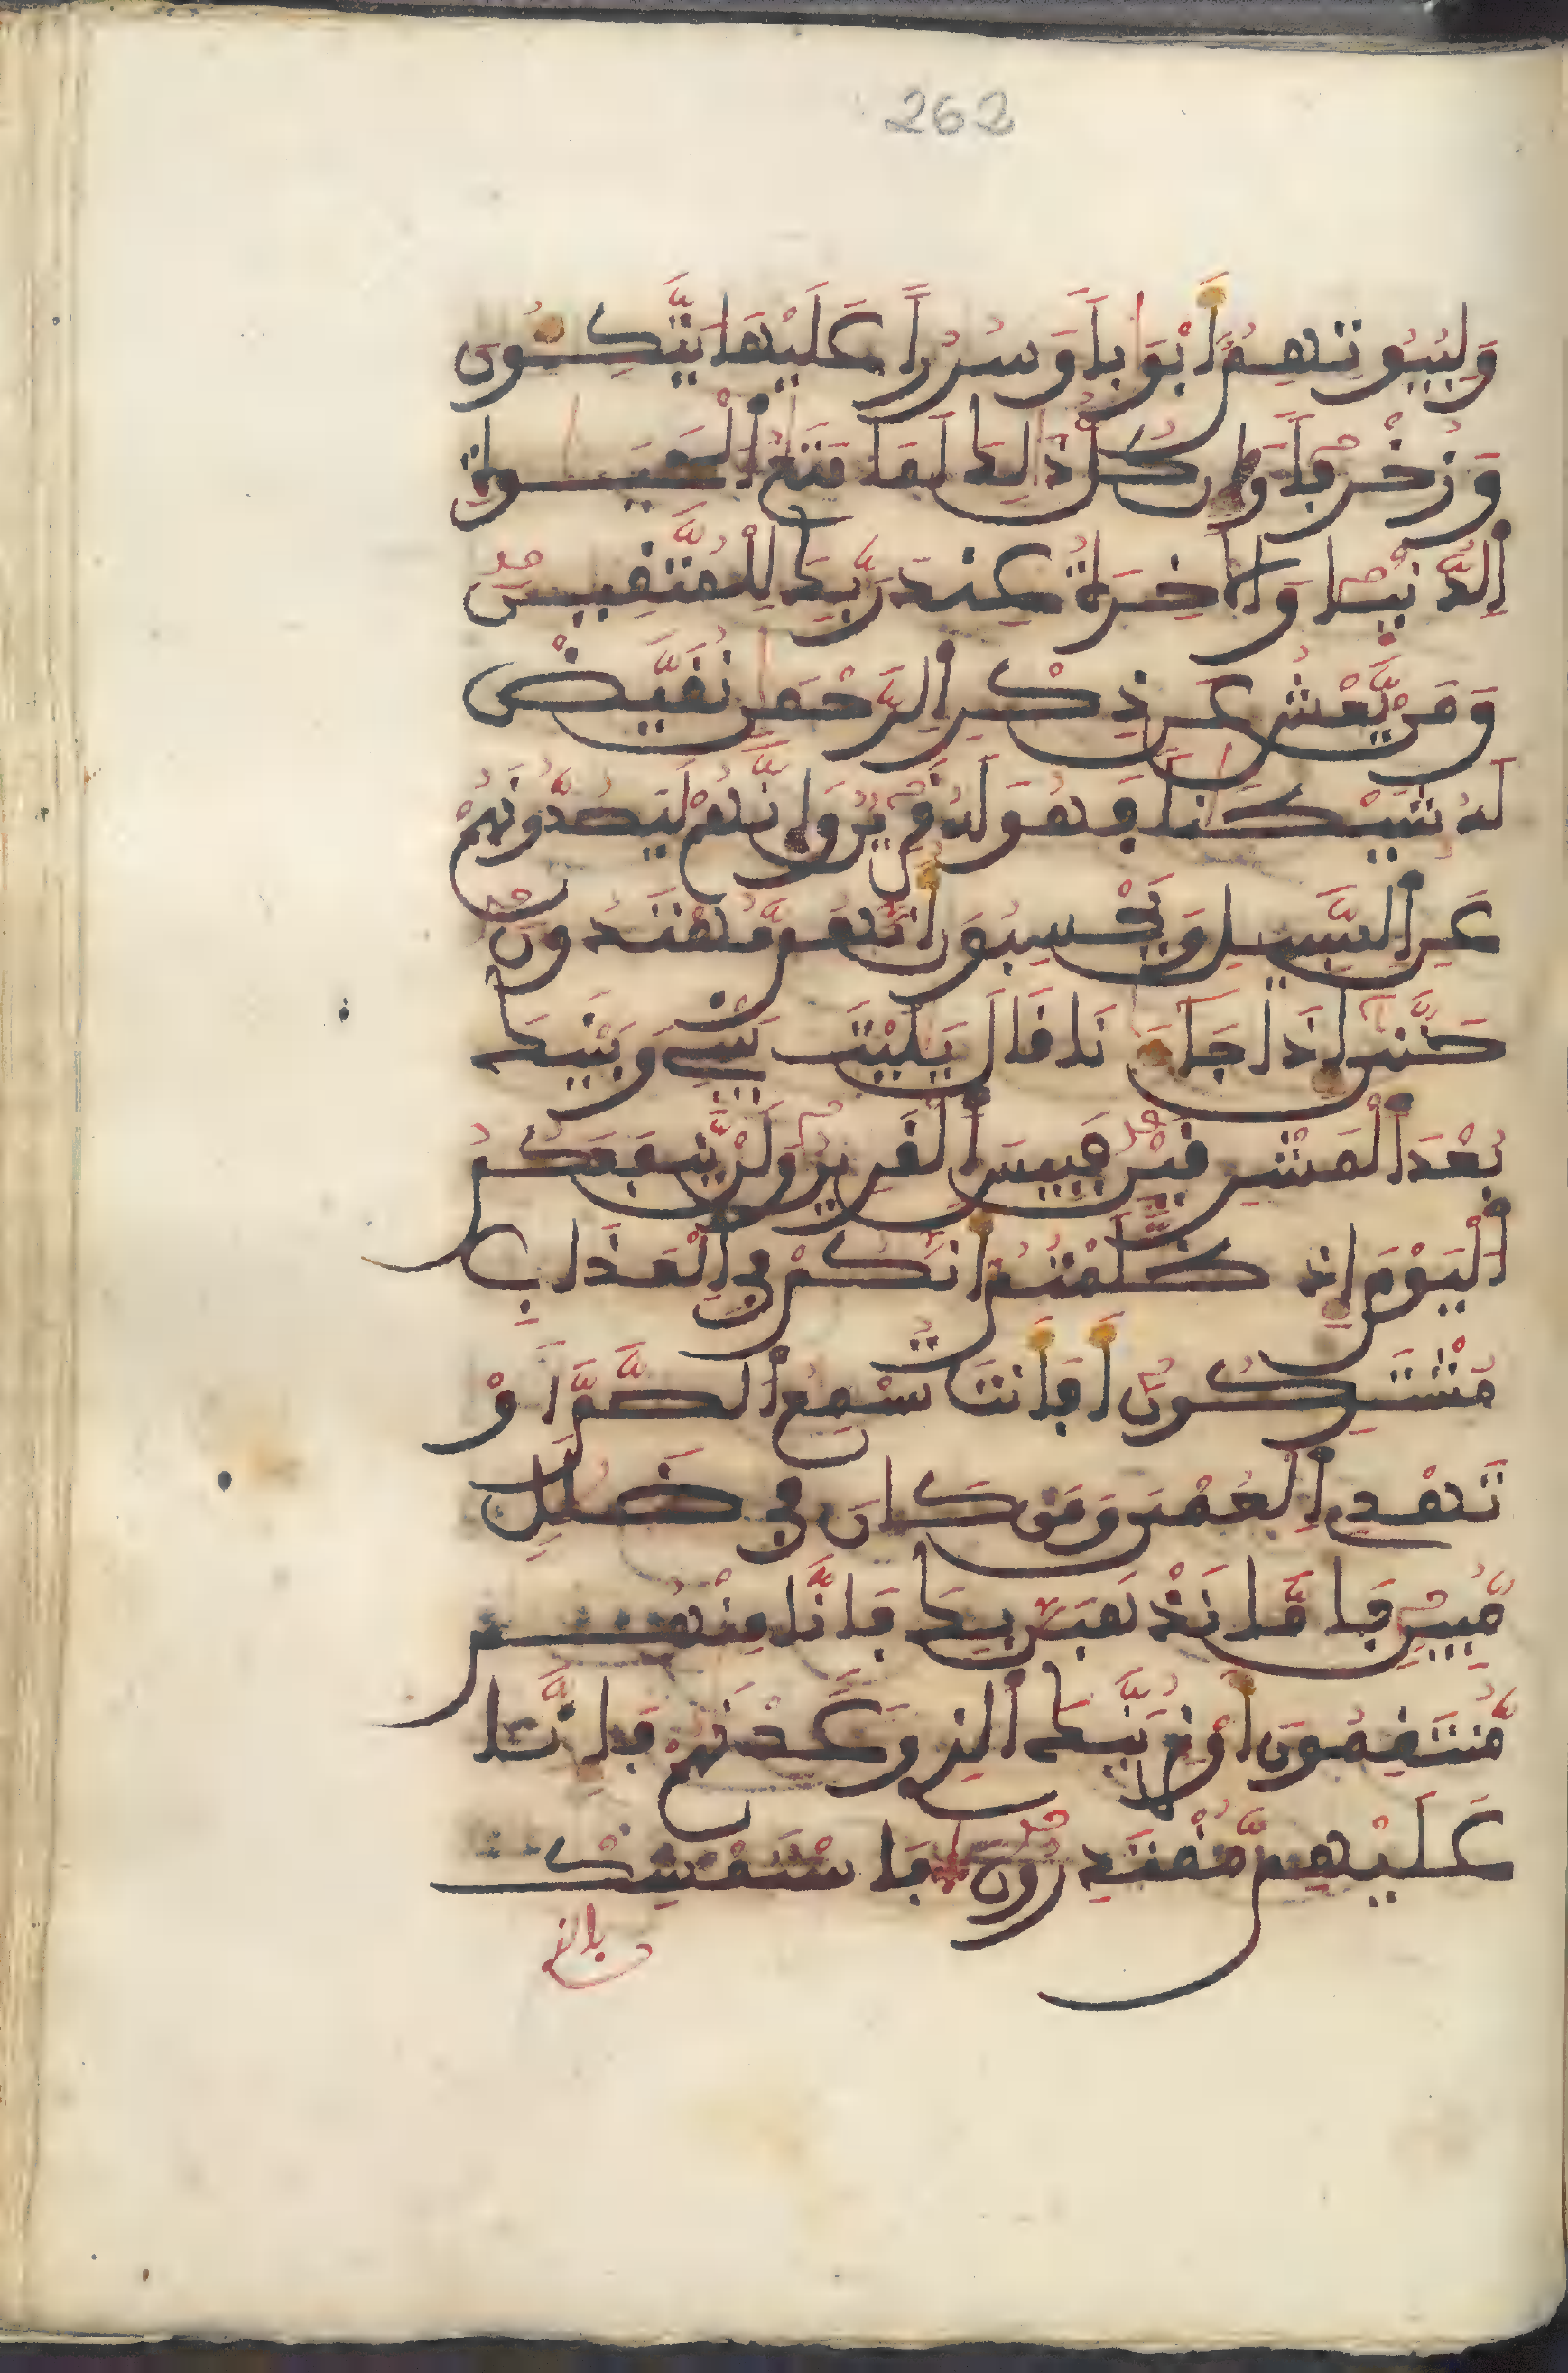 262
وَلِبُيُوتِهِمُۥٓ أَبْوَٰباٗ وَسُرُراً عَلَيْهَا يَتَّكِـُٔونَ
وَزُخْرُفاٗ وَإِن كُلُّ ذَٰلِكَ لَمَا مَتَٰعُ اُ۬لْحَيَوٰةِ
اِ۬لدُّنْيَا وَالَاخِرَةُ عِندَ رَبِّكَ لِلْمُتَّقِينَ
وَمَنْ يَّعْشُ عَن ذِكْرِ اِ۬لرَّحْمَٰنِ نُقَيِّضْ
لَهُۥ شَيْطَٰناٗ فَهُوَ لَهُۥ قَرِينٞ وَإِنَّهُمْ لَيَصُدُّونَهُمْ
عَنِ اِ۬لسَّبِيلِ وَيَحْسِبُونَ أَنَّهُم مُّهْتَدُونَ
حَتَّىٰٓ إِذَا جَآءَٰنَا قَالَ يَٰلَيْتَ بَيْنِے وَبَيْنَكَ
بُعْدَ اَ۬لْمَشْرِقَيْنِ فَبِيسَ اَ۬لْقَرِينُ وَلَنْ يَّنفَعَكُمُ
اُ۬لْيَوْمَ إِذ ظَّلَمْتُمُۥٓ أَنَّكُمْ فِے اِ۬لْعَذَابِ
مُشْتَرِكُونَ أَفَأَنتَ تُسْمِعُ اُ۬لصُّمَّ أَوْ
تَهْدِے اِ۬لْعُمْيَ وَمَن كَانَ فِے ضَلَٰلٖ
مُّبِينٖ فَإِمَّا نَذْهَبَنَّ بِكَ فَإِنَّا مِنْهُم
مُّنتَقِمُونَ أَوْ نُرِيَنَّكَ اَ۬لذِے وَعَدْنَٰهُمْ فَإِنَّا
عَلَيْهِم مُّقْتَدِرُونَ فَاسْتَمْسِكْ
بالذ